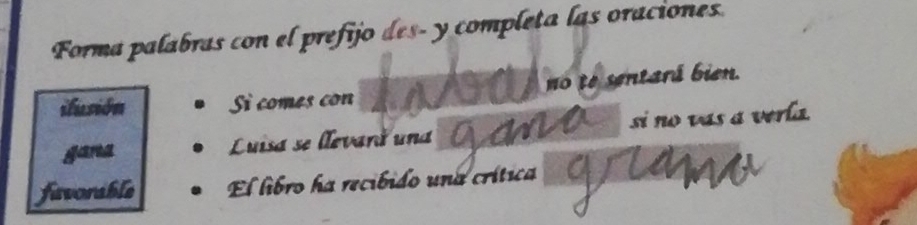 Forma palabras con el prefijo des- y completa las oraciones.
ilusión
gana
favorable
• Si comes con no te sentará bien.
• Luisa se llevará una gana si no vas a verla.
• El libro ha recibido una crítica grama